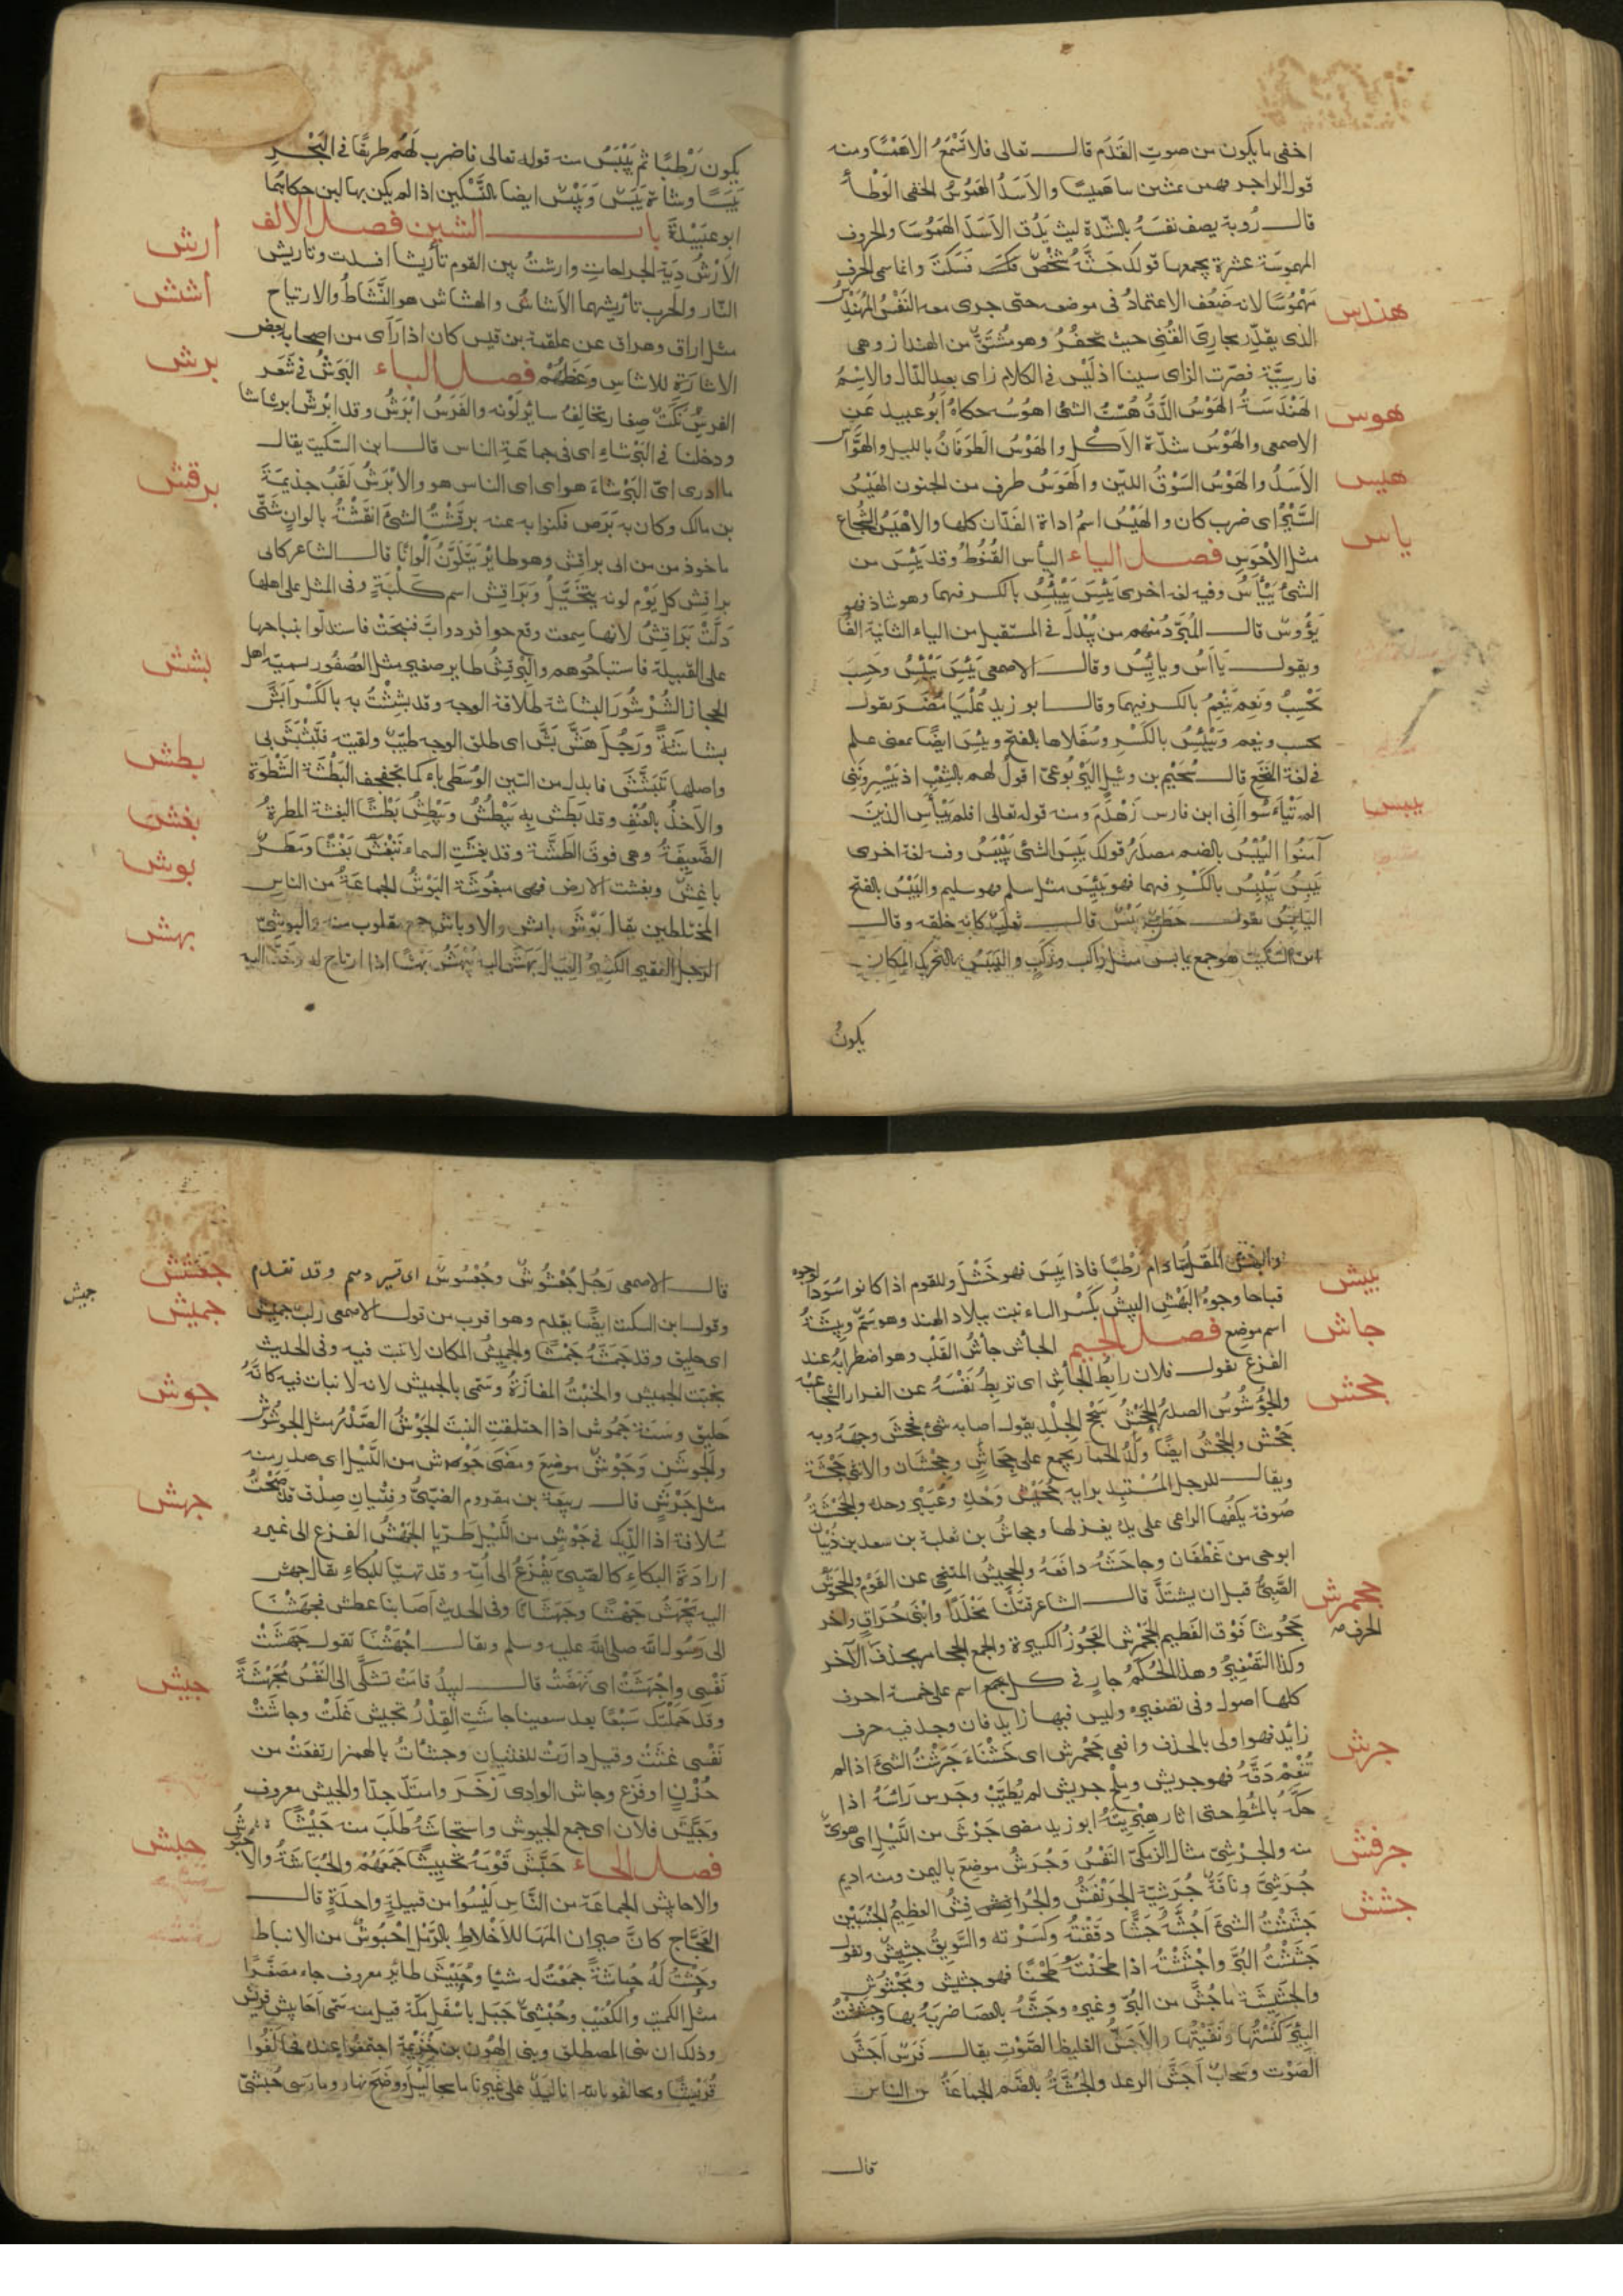 اخفى ما يكون من صوت القَدَم قالــ تعالى فلا تَسْمَعُ الا هَمْسًا ومنه
قول الراجز وهن يمشين بنا هميسًا والاَسَدُ الهَمُوسُ الخفى الوَطْأ
قالــ رُوبة يصف نفسَهُ بالشّدّة ليث يَدُق الاَسَدَ الهَمُوسَا والحروف
المهموسَة عشرة يجمعها قولك حَثَّهُ شَخْصٌ فسَكَتَ وانما سمى الحرف
مَهْمُوسًا لانه ضَعُف الاعتمادُ فى موضعه حتى جرى معه النَفَسُ المُهَنْدِسُ
هندس
الذى يقدّر مجارِىَ القُنِىِّ حيث تحفَرُ وهو مُشتَقٌّ من الهنداز وهى
فارسيّة فصيّرت الزاى سينا اذ لَيْس فى الكلام زاى بعد الدّال والاِسْمُ
الهَنْدَسَةُ الهَوْسُ الدَّقُّ هُسْتُ الشئ اهُوسُه حكاهُ اَبُو عبيد عَنِ
هوس
الاصمعى والهَوْسُ شدّة الاَكْل والهَوْسُ الطوَفَانُ بالليل والهَوَّاسُ
الاَسَدُ والهَوْسُ السَوْقُ اللَيّن والهَوَسُ طرف من الجنون الهَيْسُ
هيس
السَّيْرُ اى ضرب كان والهَيْسُ اسمُ اداة الفَدّان كلها والاَهْيَسُ الشجاع
مثل الاَحْوَسِ فصــل الياء اليأس القُنُوطُ وقد يَئِسَ من
ياس
الشئ يَيْأَسُ وفيه لغة اخرى يَئِسَ يَيْئِسُ بالكسر فيهما وهو شاذ فهو
يَؤُوسٌ قالــ المُبَرِّدُ منهم من يُبْدِلُ فى المستقبل من الياء الثانية الفًا
ويقولــ يَاأَسُ ويايَئِسُ وقالــ الاصمعى يَئِسَ يَيْئِسُ وحَسِبَ
يَحْسِبُ ونَعِمَ يَنْعِمُ بالكسر فيهما وقالــ ابو زيد عُلْيَا مُضَرَ تقولــ
يحسِب وينعِم ويَيْئِسُ بالكَسْر وسُفْلاها بالفتح ويَئِسَ ايضًا بمعنى علم
فى لغة النَخَعِ قالــ سُحَيْم بن وَثِيل اليَرْبُوعىّ اقولُ لهم بالشِعْبِ اذ يَيْسِرونَنِى
الم تَيْأَسُوا اَنّى ابن فارس زَهْدَمِ ومنه قوله تعالى افلم يَيْأَسِ الذينَ
آمنُوا اليُبْسُ بالضم مصدَرُ قولك يَبِسَ الشئ يَيْبَسُ وفيه لغة اخرى
يبس
يَبِسَ يَيْبِسُ بالكَسْرِ فيهما فهو يَبِيسٌ مثل سلم فهو سليم واليَبْسُ بالفتح
اليَابِسُ يقولــ حَطَبٌ يَبْسٌ قالــ ثعلبٌ كانه خلقه وقالــ
ابن السّكّيت هو جمع يابس مثل راكب ورَكْبٍ واليَبَسُ بالتحريك المكان
يكونُ
يكون رَطْبًا ثم يَيْبَسُ منه قوله تعالى فاضرب لَهُم طريقًا فى البَحْرِ
يَبَسًا وشاة يَبَسٌ ويَبْسٌ ايضا بالتَّسْكين اذا لم يكن بها لبن حكاهُما
ابو عبَيْدة بابــ الشين فصــل الالف
الاَرْشُ دِيَة الجراحاتِ وارشتُ بين القوم تأريشا افسدت وتاريش
ارش
النّار والحرب تأريثهما الاَشاشُ والهشاش هو النَّشَاطُ والارتياح
اشش
مثل اراق وهراق عن علقمة بن قيس كان اذا رَأَى من اصحابه بعض
الاشاشة للاشاس وعَظَهُم فصــل الباء البَرَشُ فى شَعَر
برش
الفرسِ نُكَتٌ صِغار تخالِفُ سائر لَوْنه والفَرَسُ ابْرَشُ وقد ابْرشّ ابرشاشا
ودخلنا فى البَرْشاءِ اى فى جماعَةِ الناس قالــ ابن السّكيت يقالــ
ما ادرى اىّ البَرْشاءَ هو اى اى الناس هو والاَبْرَشُ لَقَبُ جذيمَةَ
بن مالك وكان به بَرَص فكنوا به عنه برقَشْتُ الشئَ انقَشْتُهُ بالوانٍ شَتّى
برقش
ماخوذ من ابى براقش وهو طائر يَتَلَوّنُ اَلْوانًا قالــ الشاعر كابى
براقِش كل يَوْم لونه يتخَيَّلُ وبَرَاقِش اسم كَلْبَةٍ وفى المثل على اهلها
دَلَّتْ بَرَاقِشُ لانها سمعت وقع حوافر دوابَّ فنبحَتْ فاستدلّوا بنباحها
على القبيلة فاستباحُوهم والبِرْقِشُ طاير صغير مثل العُصفُور يسميّه اهل
الحجاز الشُرْشُورَ البشاشة طَلاقة الوجه وقد بشِشْتُ به بالكَسْرِ اَبَشَّ
بشش
بشاشَةً ورَجُل هَشٌّ بَشٌّ اى طلق الوجه طيّبٌ ولقيته فتَبَشْبَشَ بى
واصلها تَبَشَّشَ فابدل من الشين الوُسْطى باءً كما تجفجف البَطْشَة السَّطْوَة
بطش
والاَخذُ بالعُنْفِ وقد بَطَشَ بِه يَبْطُشُ ويَبْطِشُ بَطْشًا البغشة المطرةُ
بغش
الضَّعِيفَةُ وهى فوقَ الطَشَّة وقد بغشَتِ السماء تَبْغَشُ بَغْشًا ومَطَرٌ
باغشٌ وبغشت الارض فهى مبغُوشة البَوْشُ الجماعَةُ من الناس
بوش
المُختلطين يقال بَوْش بائش والاوباش جمع مقلوب منه والبوشىّ
الرجل الفقير الكثير العيال بَهَشَ اليه يَبْهَشُ بَهْشًا اذا ارتاح له وخَفَّ اليه
بهش
والبهش المُقل ما دام رَطْبًا فاذا يَبِسَ فهو خَشْل وللقوم اذا كانوا سُودَ الوجوه
قباحا وجوهُ البَهْشِ البِيشُ بكَسْر الباء نبت ببلاد الهند وهو سَمٌّ وبِيشَةُ
بيش
اسم موضِع فصــل الجيم الجأش جأشُ القَلْب وهو اضطرابُهُ عند
جاش
الفزع يقولــ فلان رابِطُ الجَأشِ اى يَرْبِطُ نَفْسَهُ عن الفرار لشجاعته
والجؤشُوشُ الصدرُ الجَحْشُ سَحْجُ الجِلْدِ يقول اصابه شئ فجحَشَ وجهَهُ وبه
جحش
جَحْش والجَحْشُ ايضًا ولَدُ الحمار يجمع على جِحَاشٍ وجِحْشَان والانثى جَحْشَة
ويقالــ للرجل المُسْتَبِدِ برايه جُحَيْشُ وَحْدِهِ وعُيَيْرُ وحده والجَحْشَةُ
صُوفة يلفّها الراعى على يده يغزلها وجحاشُ بن ثعلبة بن سعد بن ذُبْيان
ابو حى من غَطَفَان وجاحَشَهُ دافَعَهُ والجَحِيشُ المتنحى عن القَوْم والجَحْوَشُ
الصَّبِىُّ قبل ان يشتَدَّ قالــ الشاعر قتَلْنَا مَخْلَدًا وابْنَىْ حُرَاقٍ واخر
جحْوَشا فَوْقَ الفَطيم الجَحْمَرِشُ العَجُوزُ الكبيرة والجمع الجحامر بحذف الآخر
جحمرش
الحرف صح
وكذا التَّصْغِيرُ وهذا الحُكْمُ جارٍ فى كــل جمع اسم على خمسة احرف
كلها اصول وفى تصغيره وليس فيها زايد فان وجد فيه حرف
زائد فهو اولى بالحذف وافعى جَحْمَرِش اى خَشْنَاءَ جَرَشْتُ الشئَ اذا لم
جرش
تُنْعِمْ دَقَّهُ فهو جريش وملح جريش لم يُطَيَّبْ وجَرَس رَاسَهُ اذا
حكّهُ بالمُشْطِ حتى اثار هِبْرِيَتَهُ ابو زيد مضى جَرْشٌ من اللَّيْلِ اى هَوِىٌّ
منه والجِرِشّىّ مثال الزِمِكّىّ النَفْسُ وجُرَشُ موضع باليمن ومنه اديم
جُرَشِىٌّ وناقَةٌ جُرَشِيّة الجَرَنْفَشُ والجُرافِشُ العظِيمُ الجَنْبَيْن
جرفش
جَشَشْتُ الشئَ اَجُشُّهُ جَشًّا دقَقْتُه وكَسَرْته والسَّوِيقُ جشِيشٌ وتقولــ
جشش
جَشَشْتُ البُرَّ واجْشَشْتُهُ اذا طحَنْتَهُ طَحْنًا فهو جشيش ومَجْشُوش
والجَشِيشَة ما جُشَّ من البُرّ وغيره وجَشَّهُ بالعصَا ضربَهُ بها وجششتُ
البِئْرَ كَنَسْتُها ونَقَّيْتُها والاَجَشُّ الغليظ الصَّوْتِ يقالــ فَرَسٌ اَجَشُّ
الصَوْت وسَحابٌ اَجَشّ الرعد والجُشَّةُ بالضَّم الجماعَةُ من الناس
قالــ
قالــ الاصمعى رَجُل جُعْشُوشٌ وجُعْسُوسٌ اى قصير دميم وقد تقدم
جعشش
وقول ابن السكّيت ايضًا يقدم وهو اقرب من قولــ الاصمعى رَكَبٌ جميشٌ
جمش
جيش
اى حليق وقد جَمَشَهُ جَمْشًا والجَمِيشُ المكان لا نبت فيه وفى الحديث
بخبْت الجميش والخَبْتُ المفازَةُ وسمّى بالجميش لانه لا نبات فيه كانَّهُ
حليق وسَنَة جَمُوش اذا احتلقتِ النبتَ الجَوْشُ الصَّدْرُ مثل الجؤشُوش
جوش
والجَوشَنِ وجَوْشٌ موضِعٌ ومضَى جَوْشٌ من اللَّيْل اى صدر منه
مثل جَرْشٍ قالــ ربيعة بن مقروم الضبّىّ وفِتْيانِ صِدْقٍ قد صَبَحْتُ
سُلافَة اذا الدّيك فى جَوْشٍ من اللَّيْل طَرَّبا الجَهْشُ الفزع الى غيره
جهش
ارادَةَ البكاءِ كالصَّبِىّ يَفْزَعُ الى اُمّه وقد تهيّا للبُكاءِ يقال جهش
اليه يَجْهَشُ جَهْشًا وجَهَشَانًا وفى الحديث اَصَابنا عطش فجَهَشْنَا
الى رسُول الله صلى الله عليه وسلم ويقالــ اَجْهَشْنَا تقولــ جَهَشَتْ
نَفْسى واَجْهَشَتْ اى نَهَضَتْ قالــ لبِيدُ قامَتْ تشكَّى الىّ النَفْسُ مُجْهِشَةً
وقَد حَمَلْتك سَبْعًا بعد سبعينا جاشَتِ القِدْرُ تجيش غلَتْ وجاشَتْ
جيش
نَفْسى غثَتْ وقيل دارَتْ للغثيان وجشَأتْ بالهمز ارتفعَتْ من
حُزْنٍ او فزَعٍ وجاش الوادى زخَرَ وامتدّ جدًا والجَيش معروف
وجَيَّشَ فلان اى جمع الجيوش واستجاشَهُ طَلَبَ منه جَيْشًا
فصــل الحاء حَبَّشَ قَوْمَهُ تحبِيشًا جَمَعَهُمْ والحُبَاشَةُ والا
حبش
حبُوشُ
والاحابيش الجماعَة من النَّاسِ لَيْسُوا من قبيلةٍ واحدَةٍ قالــ
العَجّاج كانَّ صيران المَهَا الاَخْلاطِ بالرَّمْل اُحْبُوشٌ من الانباط
وحَبَشْتُ لَهُ حُباشَةً جمَعْتُ له شيئا وحُبَيْش طائر معروف جاء مصَغَّرًا
مثل الكميت والكُعَيْتِ وحُبْشِىٌّ جَبَل باسْفَلِ مكّة قيل منه سمّى اَحَابِيش قريش
وذلك ان بنى المصطلق وبنى الهُون بن خُزَيْمة اجتمعُوا عنده فحالفُوا
قُرَيْشًا وتحالفوا بالله انا لَيَدٌ على غيرنا ما سجا لَيْلٌ ووَضَحَ نهار وما رَسى حُبْشىّ